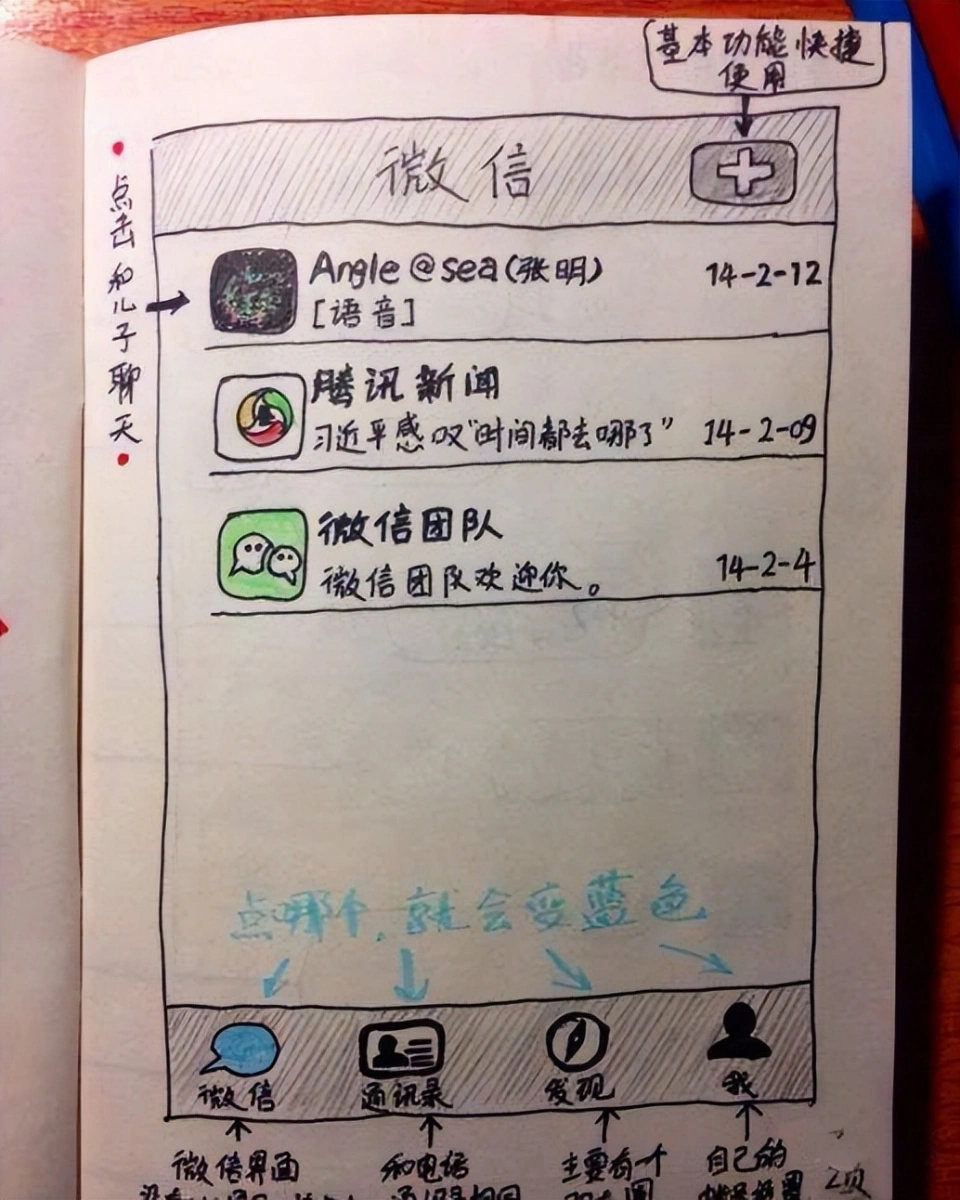 基本功能快捷
使用
微信
点击和儿子聊天
Angle@sea(张明)
14-2-12
[语音]
腾讯新闻
习近平感叹“时间都去哪了”
14-2-09
微信团队
14-2-4
微信团队欢迎你。
点哪个,就会变蓝色
微信
通讯录
发现
我
微信界面
和电话
主要有一个
自己的
2页